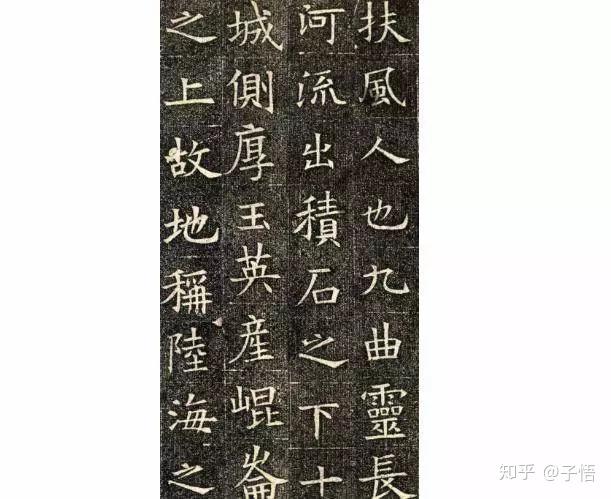 扶風人也九曲靈長
河流出積石之下十
城側厚玉英産崐崙
之上故地稱陸海之
知乎 @子悟